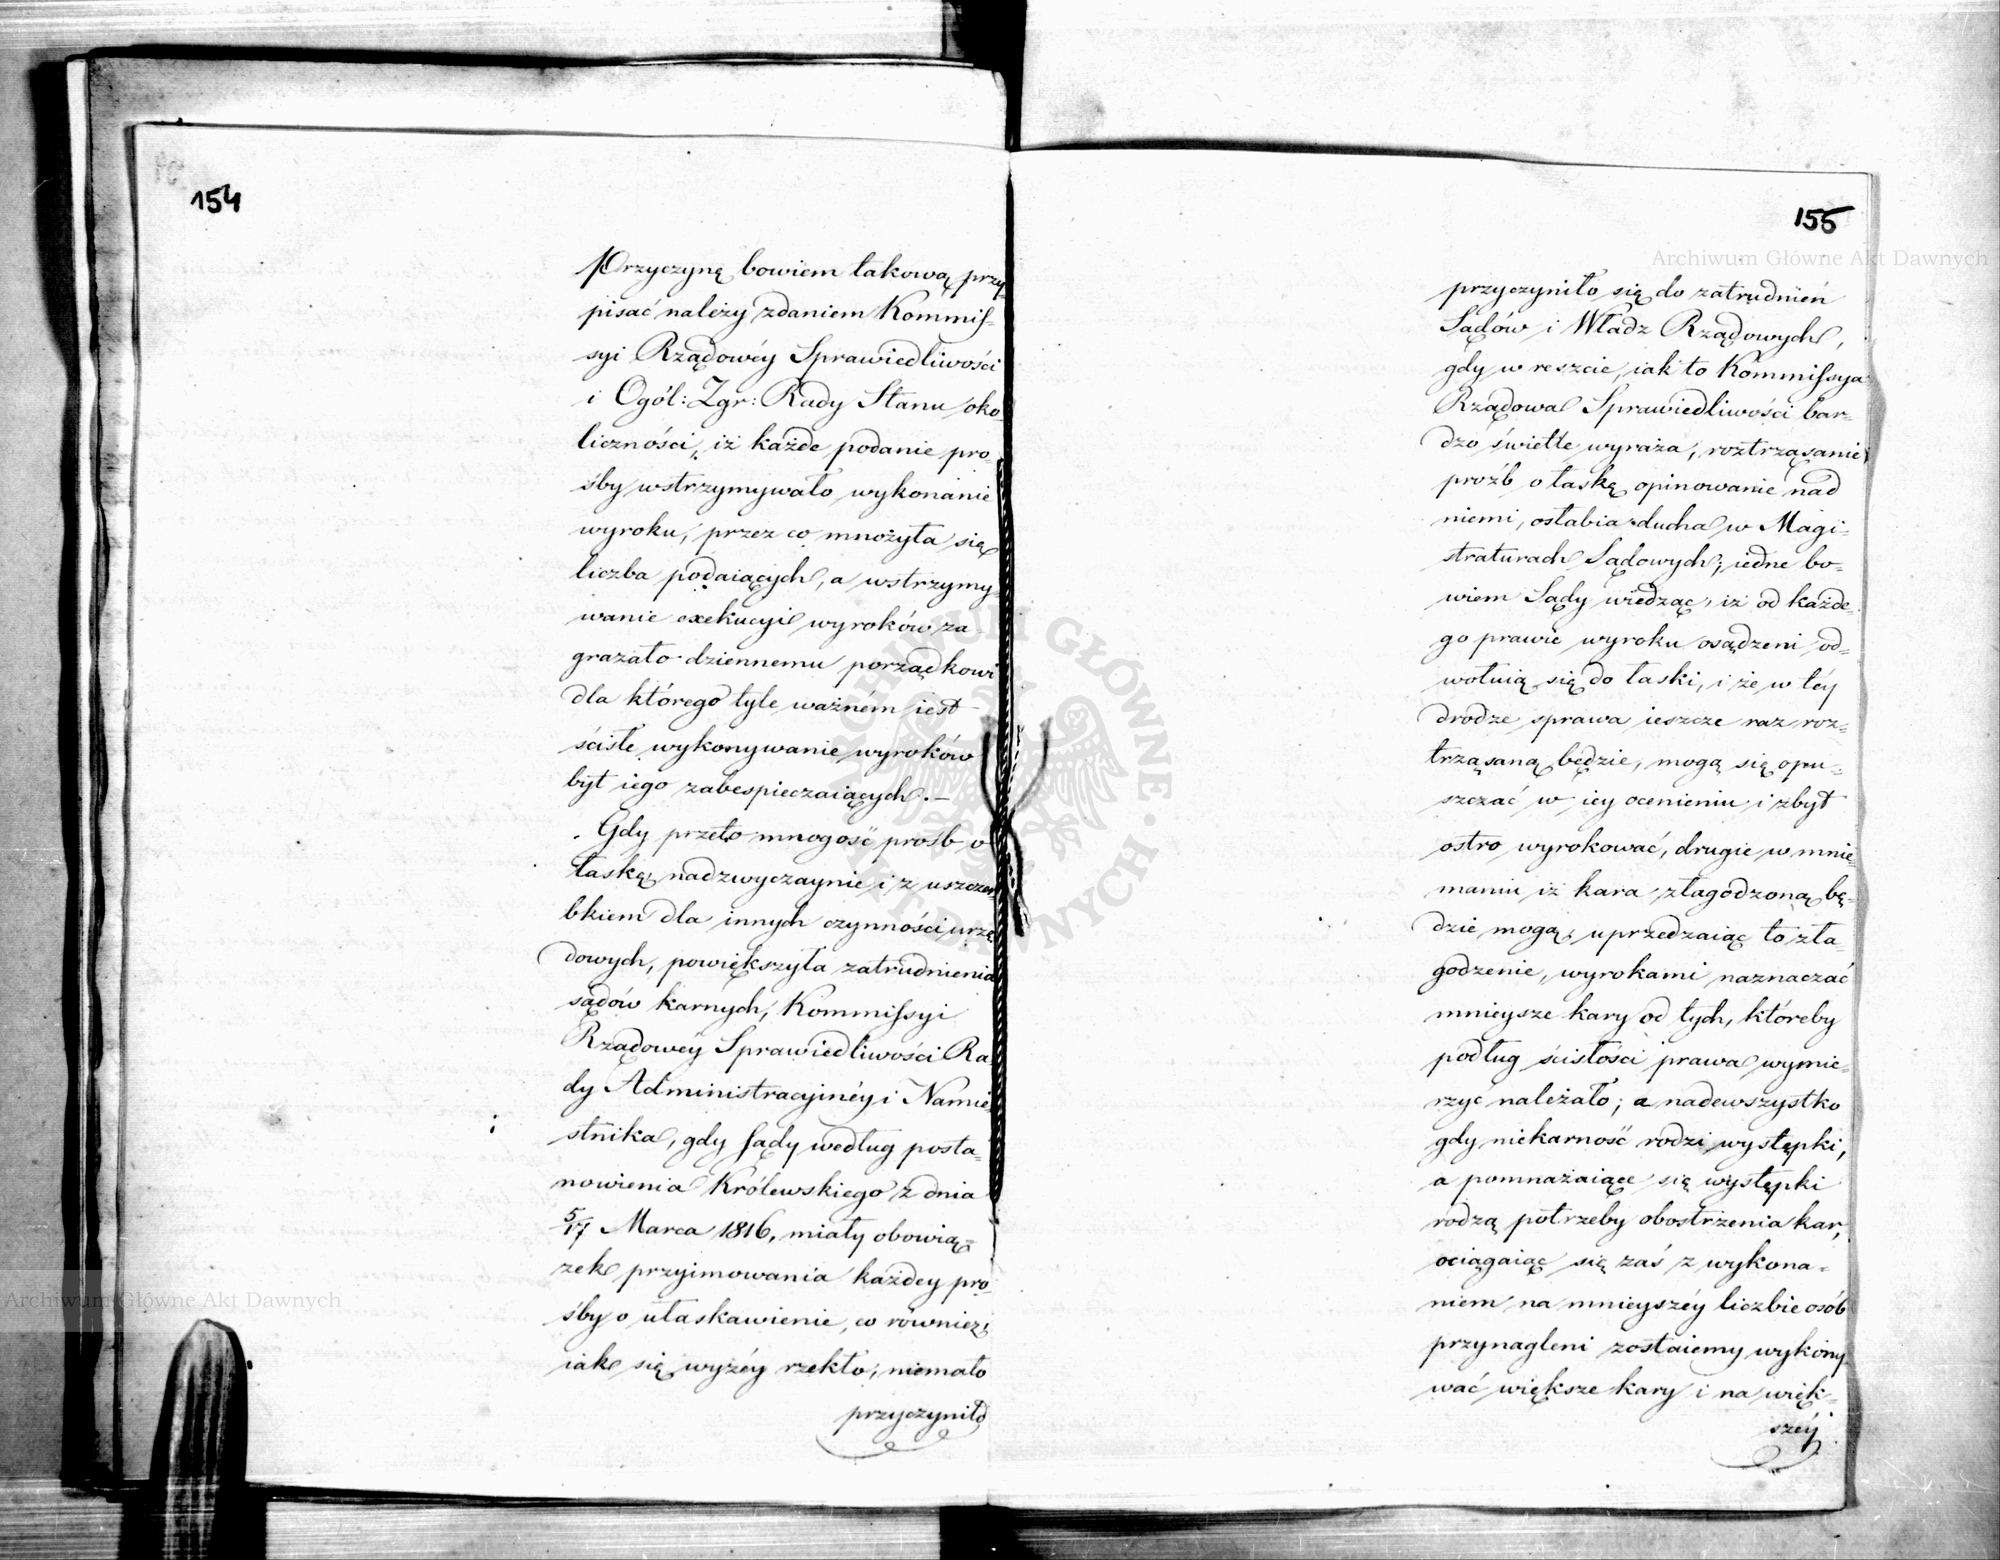 154
Przyczynę bowiem takową przy-
pisać należy zdaniem Kommis-
syi Rządowéy Sprawiedliwości
i Ogól: Zgr: Rady Stanu oko-
liczności, iż każde podanie pro-
śby wstrzymywało wykonanie
wyroku, przez co mnożyła się
liczba podaiących, a wstrzymy-
wanie exekucyi wyroków za-
grażało dziennemu porządkowi
dla którego tyle ważném iest
ścisłe wykonywanie wyroków
byt iego zabespieczaiących.-
Gdy przeto mnogość prośb o
łaskę, nadzwyczaynie i z uszczer-
bkiem dla innych czynności urzę-
dowych, powiększyła zatrudnienia
sądów karnych, Kommissyi
Rządowéy Sprawiedliwości Ra-
dy Administracyinéy i Namie-
stnika, gdy sądy według posta-
nowienia Królewskiego z dnia
5/17 Marca 1816, miały obowią-
zek przyimowania każdey pro-
śby o ułaskawienie, co również
iak się wyżéy rzekło, niemało
przyczyniło
155
przyczyniło się do zatrudnień
Sądów i Władz Rządowych,
gdy w reszcie, iak to Kommissya
Rządowa Sprawiedliwości bar-
dzo świetle wyraża, roztrząsanie
proźb o łaskę opinowanie nad
niemi, osłabia ducha w Magi-
straturach Sądowych; iedne bo-
wiem Sądy wiedząc, iż od każde-
go prawie wyroku osądzeni od-
wołuią się do łaski, i że w téy
drodze sprawa ieszcze raz roz-
trząsaną będzie, mogą się opu-
szczać w iey ocenieniu i zbyt
ostro wyrokować, drugie w mnie-
maniu iż kara złagodzoną bę-
dzie mogą, uprzedzaiąc to zła-
godzenie, wyrokami naznaczać
mnieysze kary od tych, któreby
podług ścisłości prawa wymie-
rzyć należało; a nadewszystko
gdy niekarność rodzi występki,
a pomnażaiące się występki
rodzą potrzeby obostrzenia kar,
ociągaiąc się zaś z wykona-
niem na mnieyszéy liczbie osób
przynagleni zostaiemy wykony-
wać większe kary i na więk-
széy
Archiwum Główne Akt Dawnych
Archiwum Główne Akt Dawnych